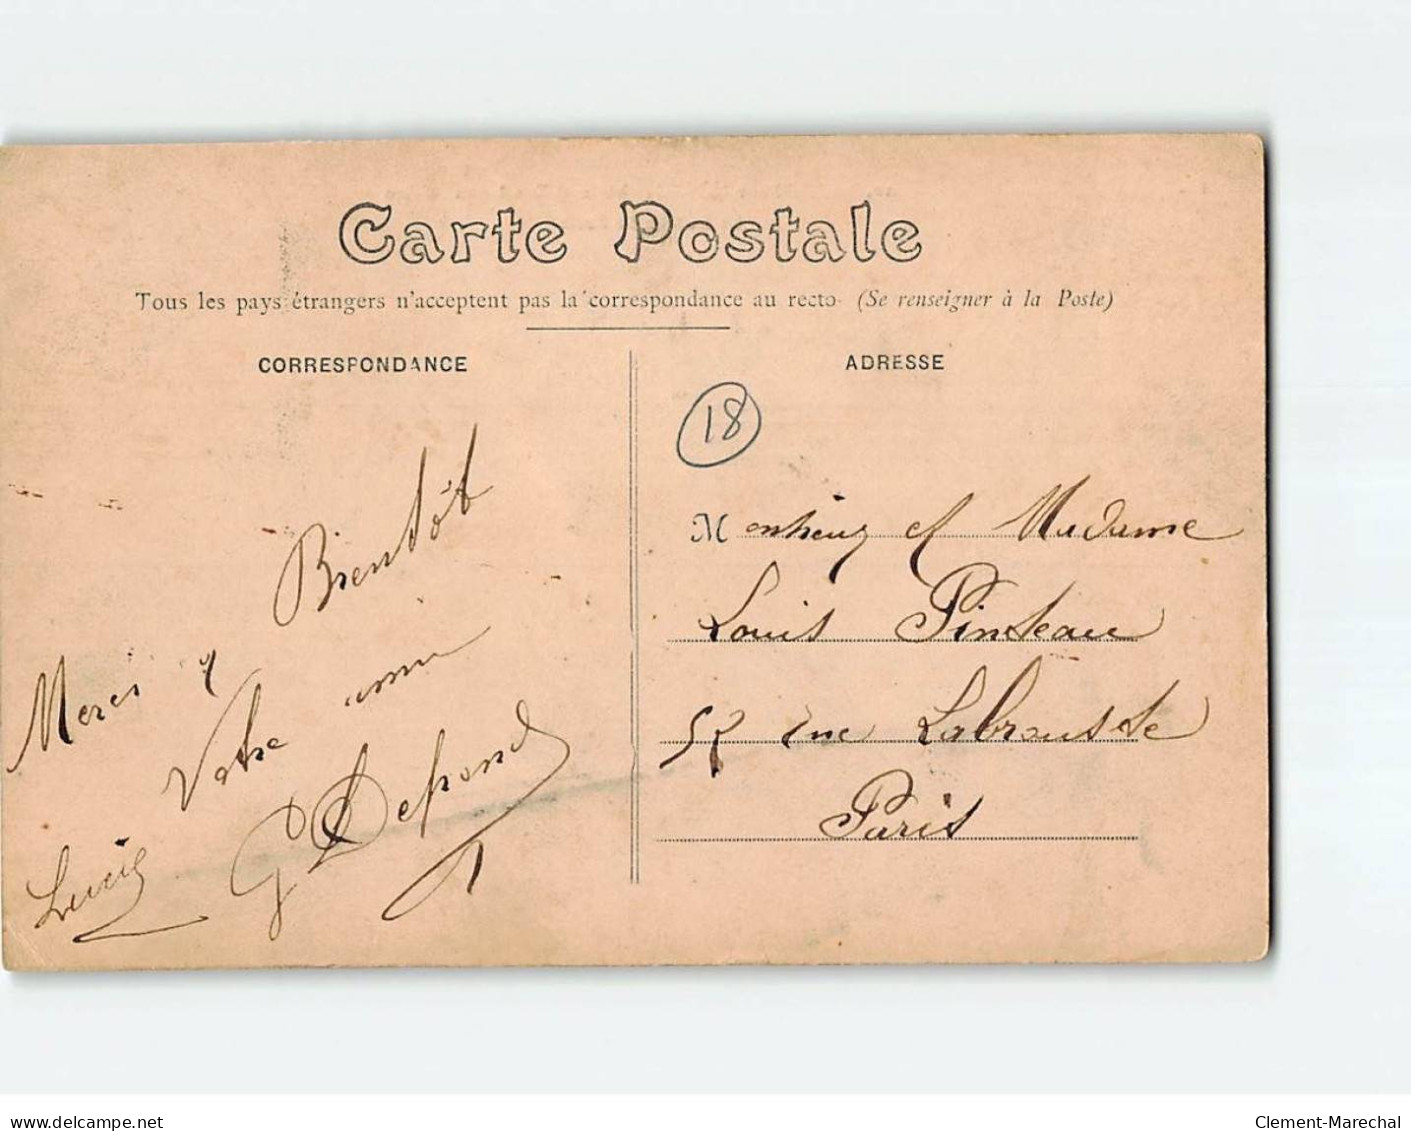 Carte Postale
Tous les pays étrangers n'acceptent pas la correspondance au recto (Se renseigner à la Poste)
CORRESPONDANCE
ADRESSE
18
Bientôt
Merci
Votre amie
G Depond
Lucie
Monsieur et Madame
Louis Pinteau
57 rue Labrouste
Paris
www.delcampe.net
Clement-Marechal